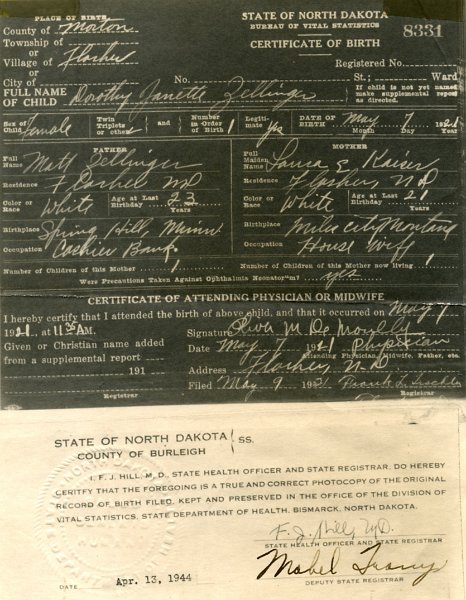 PLACE OF BIRTH
County of Morton
Township of
or
Village of Flasher
or
City of
STATE OF NORTH DAKOTA
BUREAU OF VITAL STATISTICS
CERTIFICATE OF BIRTH
8331
Registered No.
No. St.; Ward
FULL NAME OF CHILD Dorothy Janette Zellinger
If child is not yet named make supplemental report as directed.
Sex of Child Female
Twin Triplets or other
and
Number in Order of Birth 1
Legitimate yes
DATE OF BIRTH May 7, 1921
Month Day Year
FATHER
Full Name Matt Zellinger
Residence Flasher ND
Color or Race White
Age at Last Birthday
Years
Birthplace Spring Hill, Minn
Occupation Cashier Bank
MOTHER
Full Maiden Name Laura E Kaiser
Residence Flasher ND
Color or Race White
Age at Last Birthday 21
Years
Birthplace Miles City Montana
Occupation House Wife
Number of Children of this Mother 1
Number of Children of this Mother now living 1
Were Precautions Taken Against Ophthalmia Neonatorum? yes
CERTIFICATE OF ATTENDING PHYSICIAN OR MIDWIFE
I hereby certify that I attended the birth of above child, and that it occurred on May 7
1921, at 11:35 AM.
Given or Christian name added
from a supplemental report
191
Registrar
Signature M De
Date May 7 1921 Physician
Attending Physician, Midwife, Father, etc.
Address Flasher, N D
Filed May 9 1921 Frank L
Registrar
STATE OF NORTH DAKOTA
COUNTY OF BURLEIGH
SS.
I, F. J. HILL, M. D., STATE HEALTH OFFICER AND STATE REGISTRAR, DO HEREBY
CERITFY THAT THE FOREGOING IS A TRUE AND CORRECT PHOTOCOPY OF THE ORIGINAL
RECORD OF BIRTH FILED, KEPT AND PRESERVED IN THE OFFICE OF THE DIVISION OF
VITAL STATISTICS, STATE DEPARTMENT OF HEALTH, BISMARCK, NORTH DAKOTA.
F. J. Hill, M.D.
STATE HEALTH OFFICER AND STATE REGISTRAR
Mabel
DEPUTY STATE REGISTRAR
DATE Apr. 13, 1944